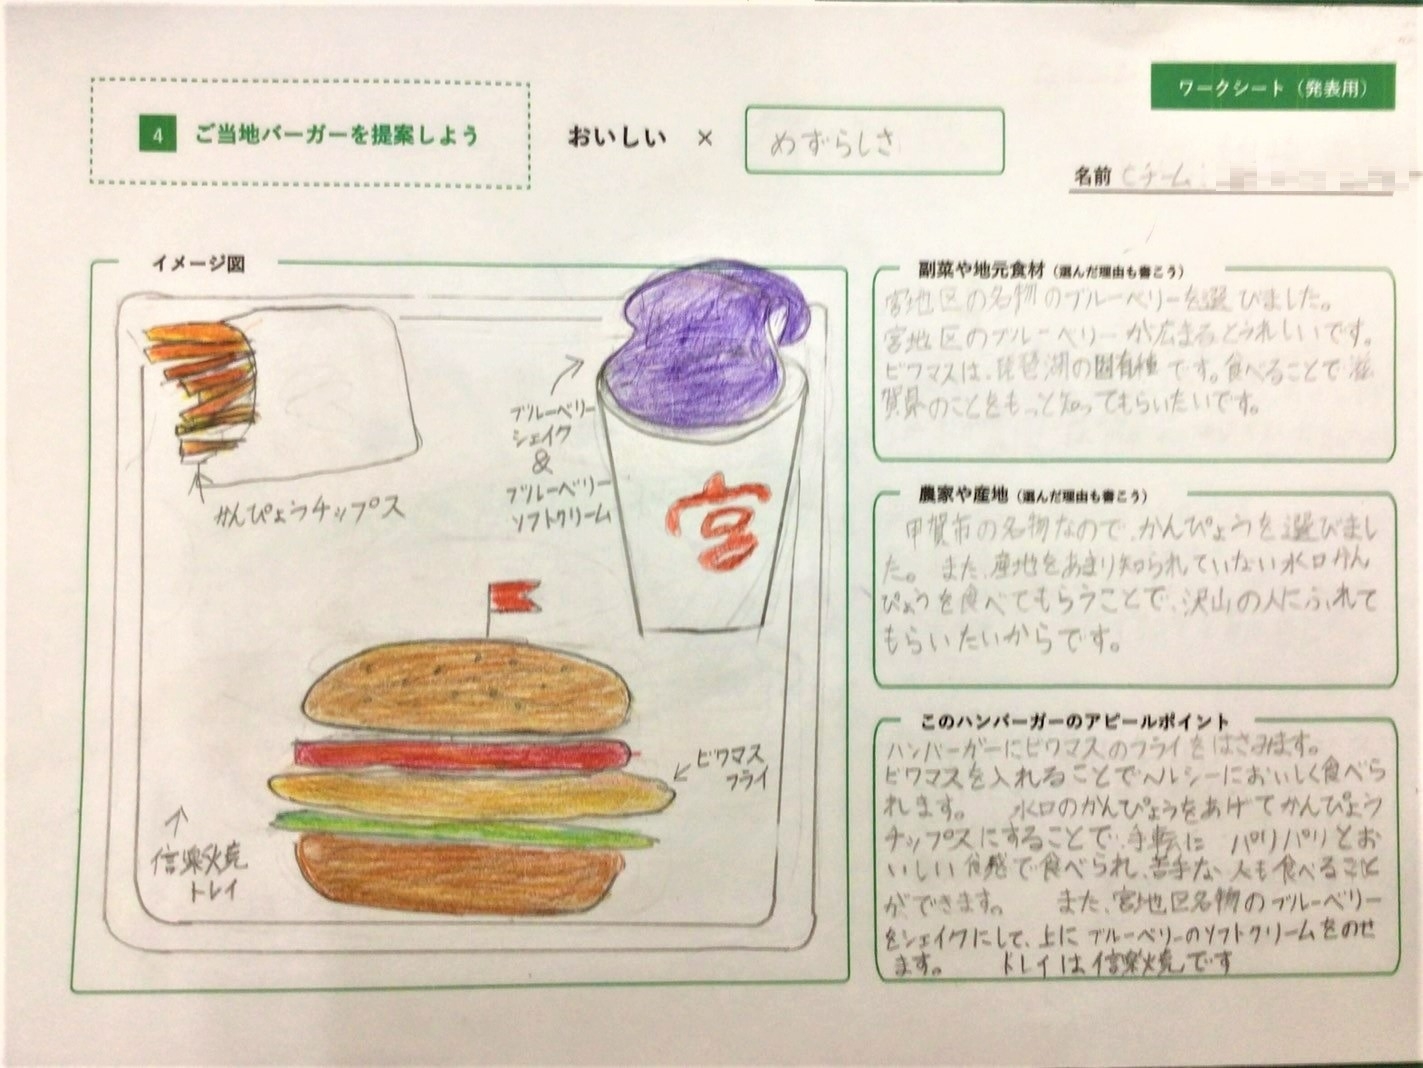 ワークシート（発表用）
4 ご当地バーガーを提案しよう
おいしい × めずらしさ
名前 Cチーム
イメージ図
ブルーベリー
シェイク
&
ブルーベリー
ソフトクリーム
宮
かんぴょうチップス
ビワマス
フライ
信楽焼
トレイ
副菜や地元食材（選んだ理由も書こう）
宮地区の名物のブルーベリーを選びました。
宮地区のブルーベリーが広まるとうれしいです。
ビワマスは、琵琶湖の固有種です。食べることで滋
賀県のことをもっと知ってもらいたいです。
農家や産地（選んだ理由も書こう）
甲賀市の名物なので、かんぴょうを選びまし
た。また、産地をあまり知られていない水口かん
ぴょうを食べてもらうことで、沢山の人にふれて
もらいたいからです。
このハンバーガーのアピールポイント
ハンバーガーにビワマスのフライをはさみます。
ビワマスを入れることでヘルシーにおいしく食べら
れます。 水口のかんぴょうをあげてかんぴょう
チップスにすることで、手転に パリパリとお
いしい食感で食べられ、苦手な人も食べること
ができます。 また、宮地区名物のブルーベリー
をシェイクにして、上にブルーベリーのソフトクリームをのせ
ます。 トレイは信楽焼です